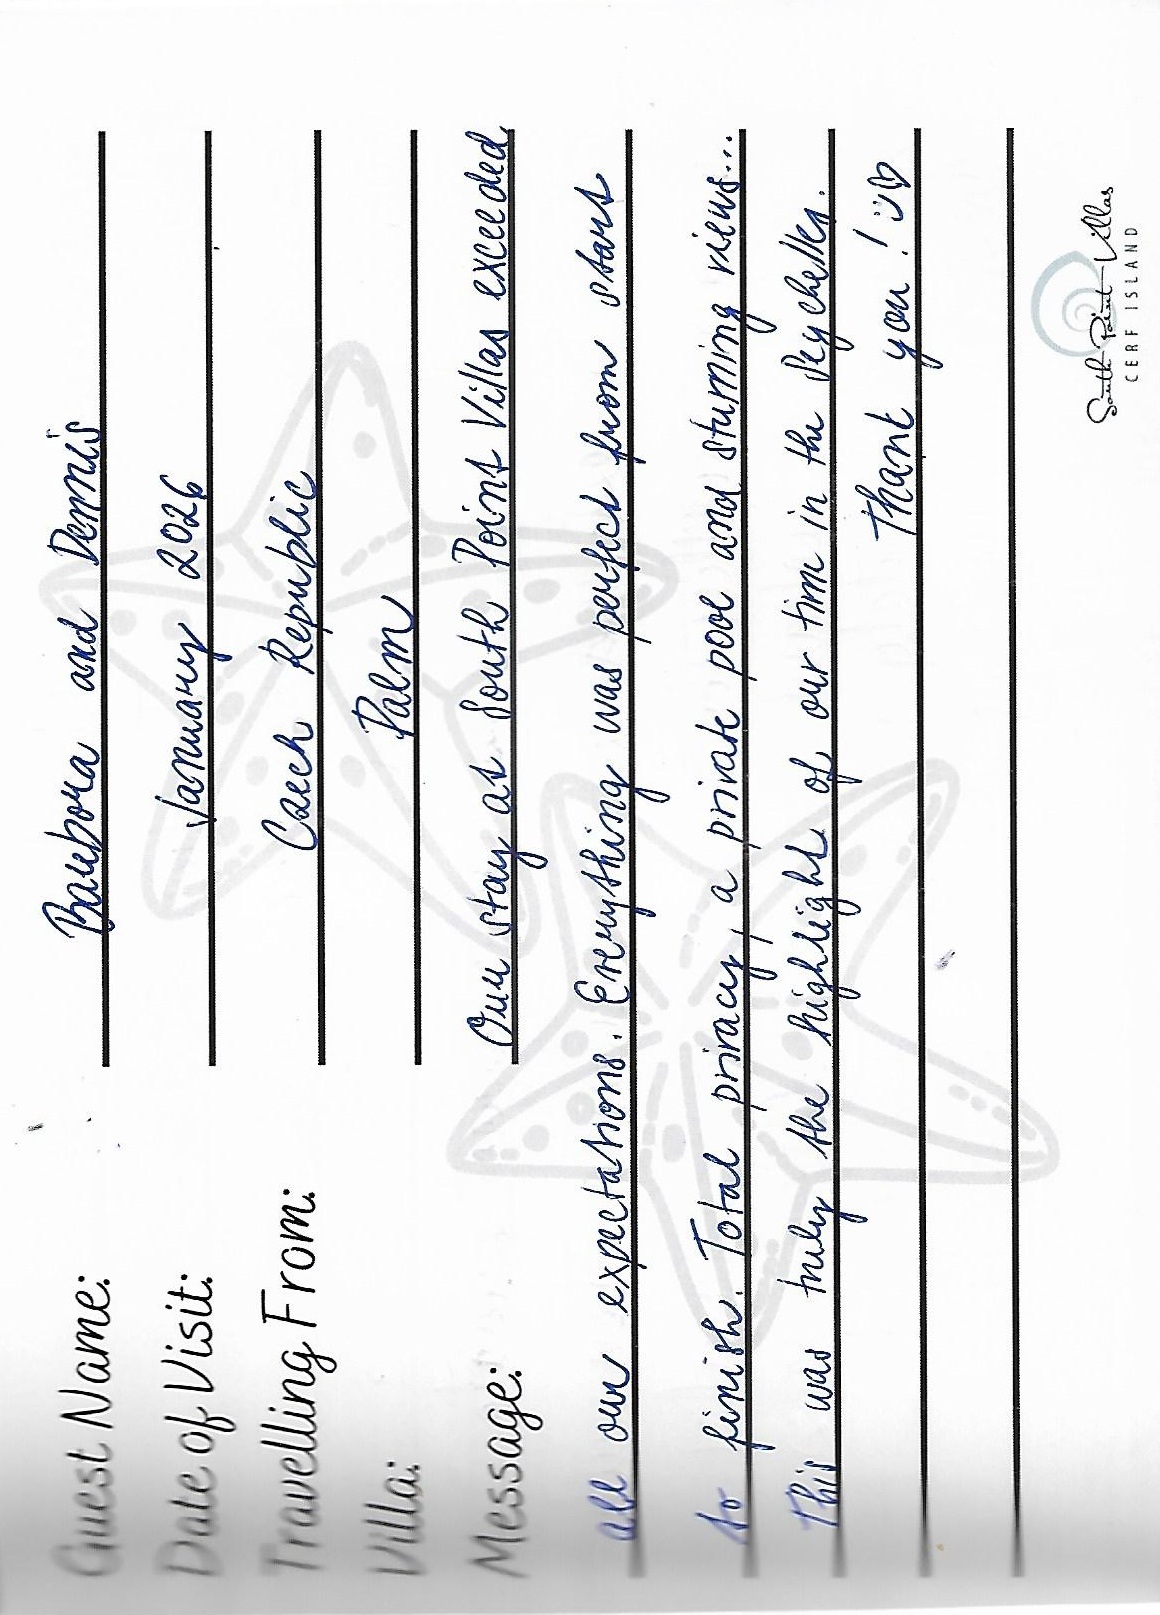 Guest Name: Barbora and Dennis
Date of Visit: January 2026
Travelling From: Czech Republic
Villa: Palm
Message: Our stay at South Point Villas exceeded
all our expectations. Everything was perfect from start
to finish. Total privacy, a private pool and stunning views...
This was truly the highlight of our time in the Seychelles.
Thank you! :)♡
South Point Villas
CERF ISLAND